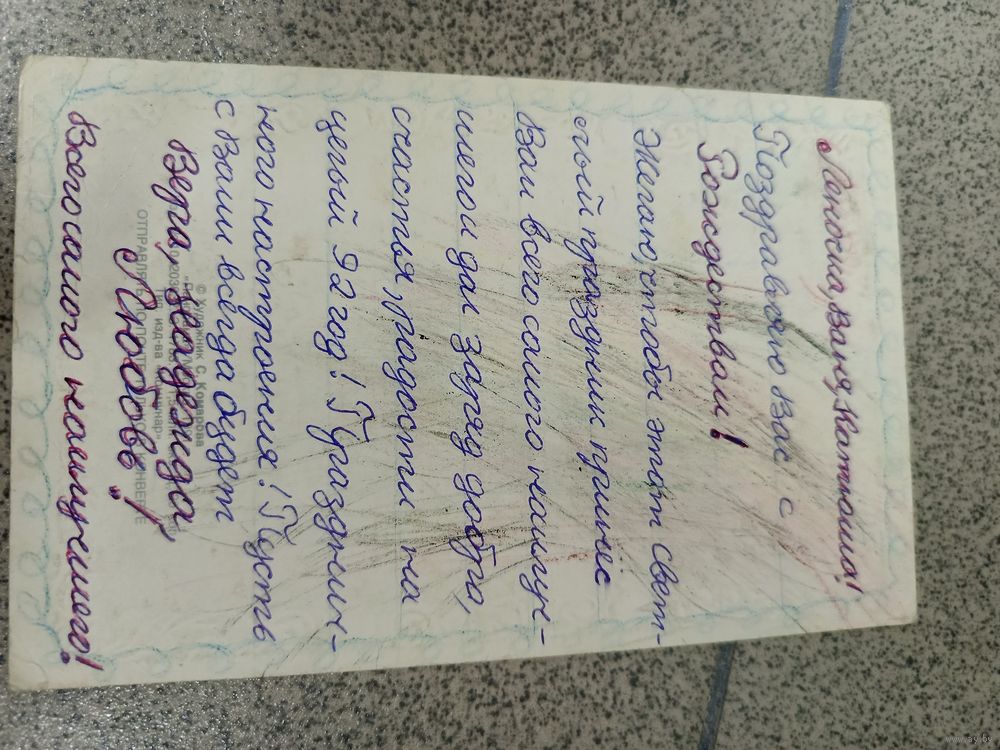 Леночка, Ваня, Катюша!
Поздравляю Вас с
Рождеством!
Желаю, чтобы этот свет-
лый праздник принёс
Вам всего самого наилуч-
шего и дал заряд добра,
счастья, радости на
целый 92 год! Празднич-
ного настроения! Пусть
с Вами всегда будет
Вера, Надежда,
Любовь!
Всего самого наилучшего!
© Художник С. Комарова
изд-ва
ОТПРАВЛЯТЬ ПО ПОЧТЕ ТОЛЬКО В КОНВЕРТЕ
www.ay.by